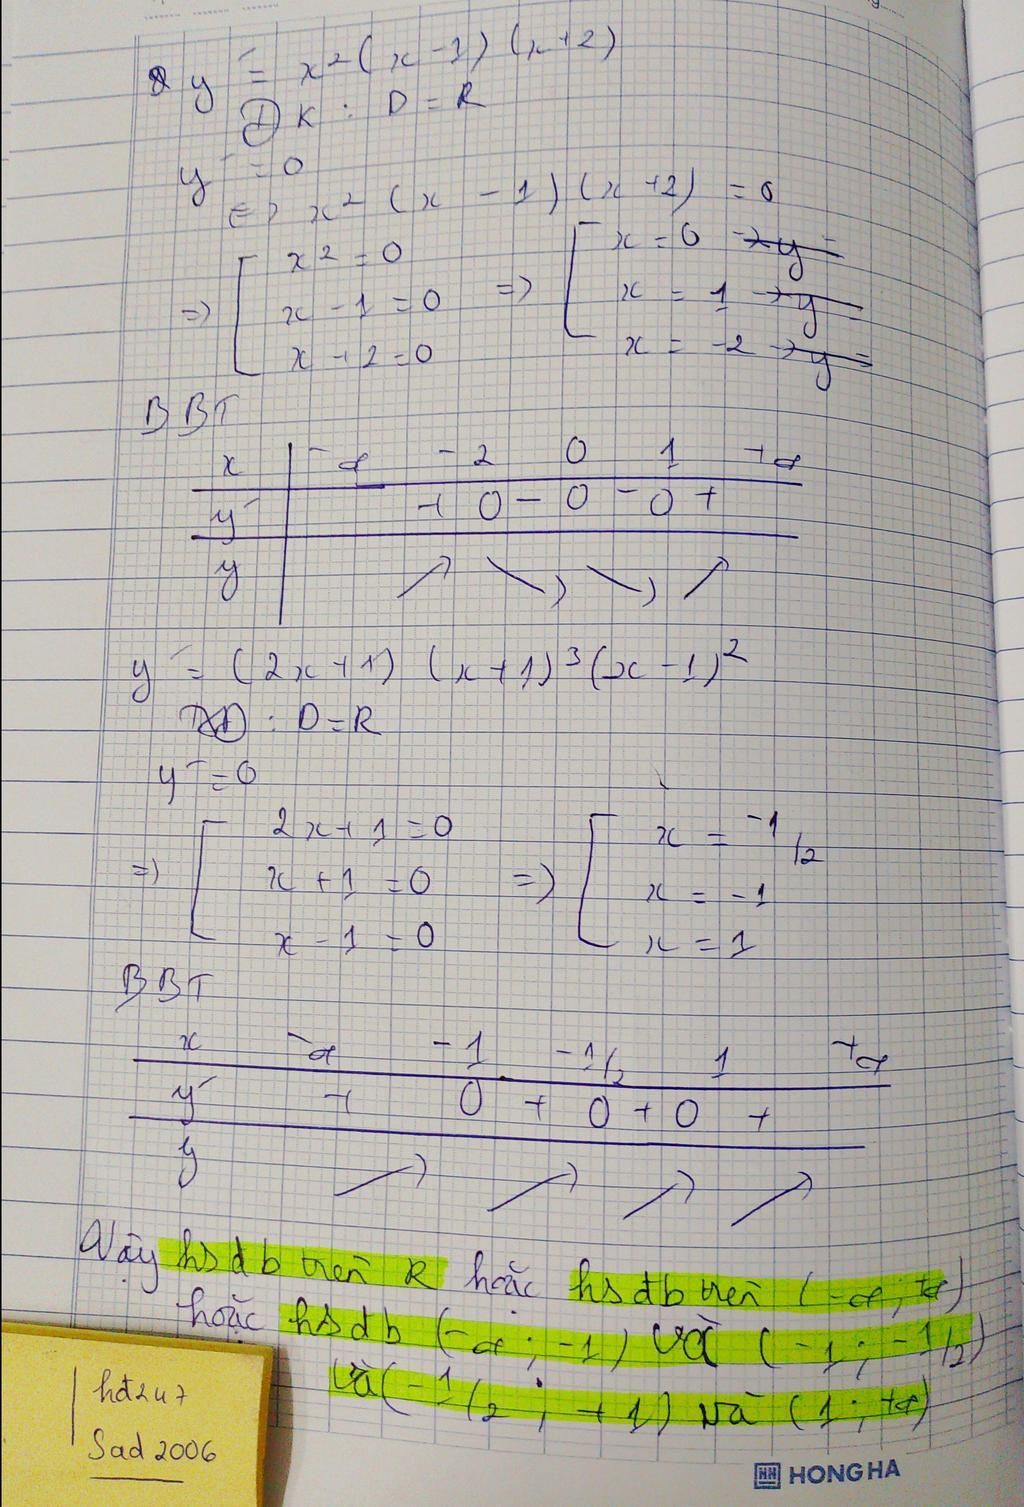 y' = x² (x - 1) (x + 2)
ĐK : D = R
y' = 0
<=> x² (x - 1) (x + 2) = 0
=> [ x² = 0 => [ x = 0
x - 1 = 0 x = 1
x + 2 = 0 x = -2
BBT
x -∞ -2 0 1 +∞
y' + 0 - 0 - 0 +
y ↗ ↘ ↘ ↗
y' = (2x + 1) (x + 1)³ (x - 1)²
: D = R
y' = 0
=> [ 2x + 1 = 0 => [ x = -1/2
x + 1 = 0 x = -1
x - 1 = 0 x = 1
BBT
x -∞ -1 -1/2 1 +∞
y' + 0 + 0 + 0 +
y ↗ ↗ ↗ ↗
Vậy hs đb trên R hoặc hs đb trên (-∞ ; +∞)
hoặc hs đb (-∞ ; -1) và (-1 ; -1/2)
và (-1/2 ; +1) và (1 ; +∞)
hđ247
Sad 2006
HH HONG HA